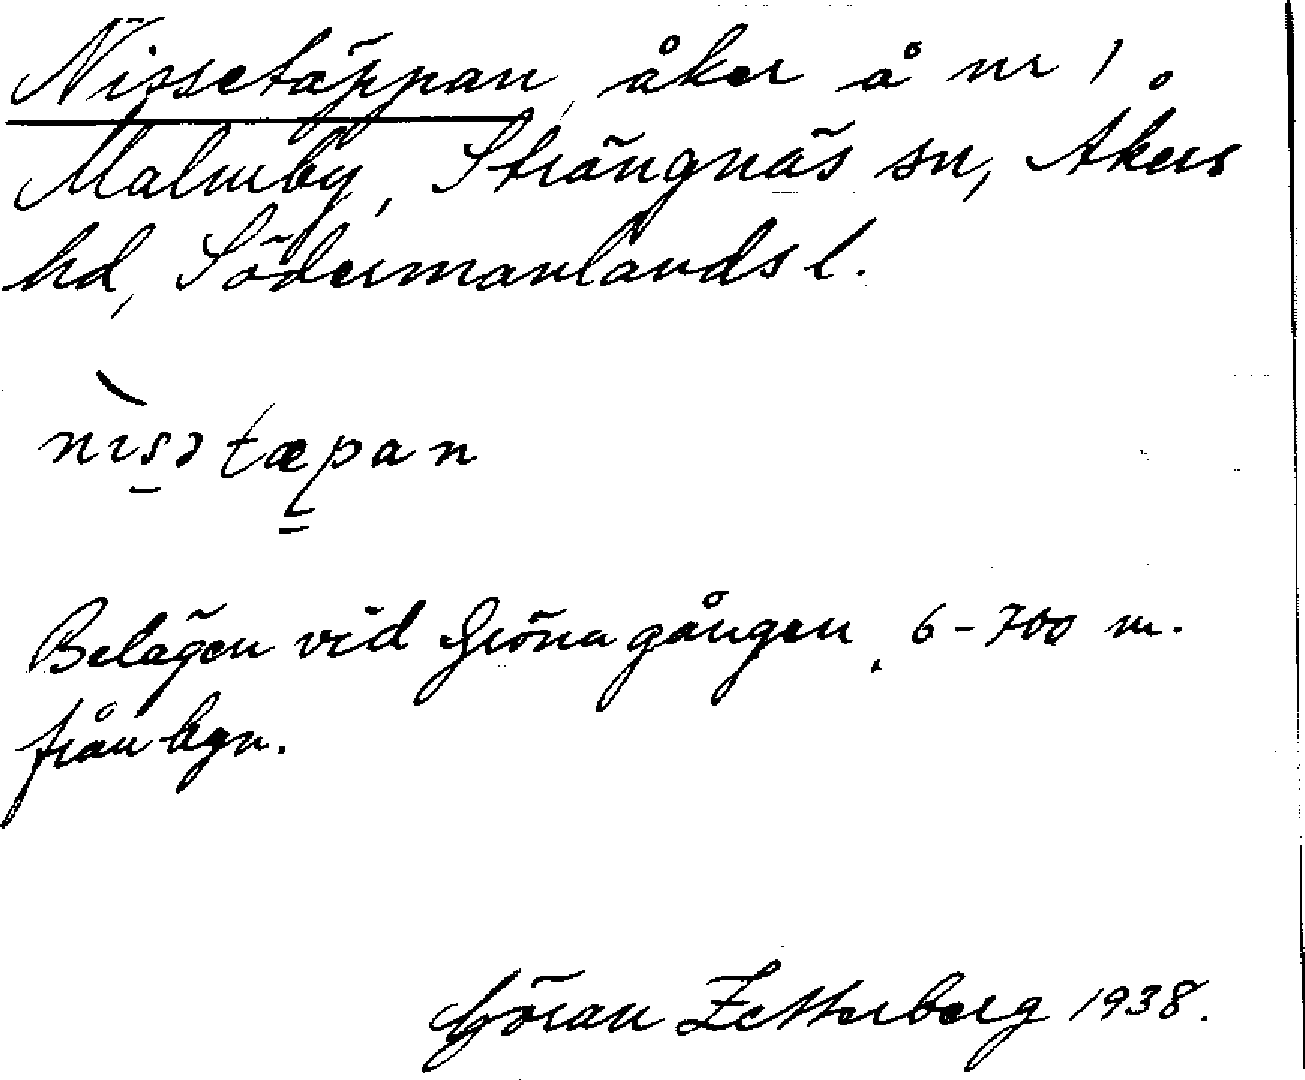 Nissetäppan, åker å nr 1
Malmby, Strängnäs sn, Åkers
hd, Södermanlands l.
nìsətæpan
Belägen vid Gröna gången, 6-700 m.
från bgn.
Göran Zetterberg 1938.